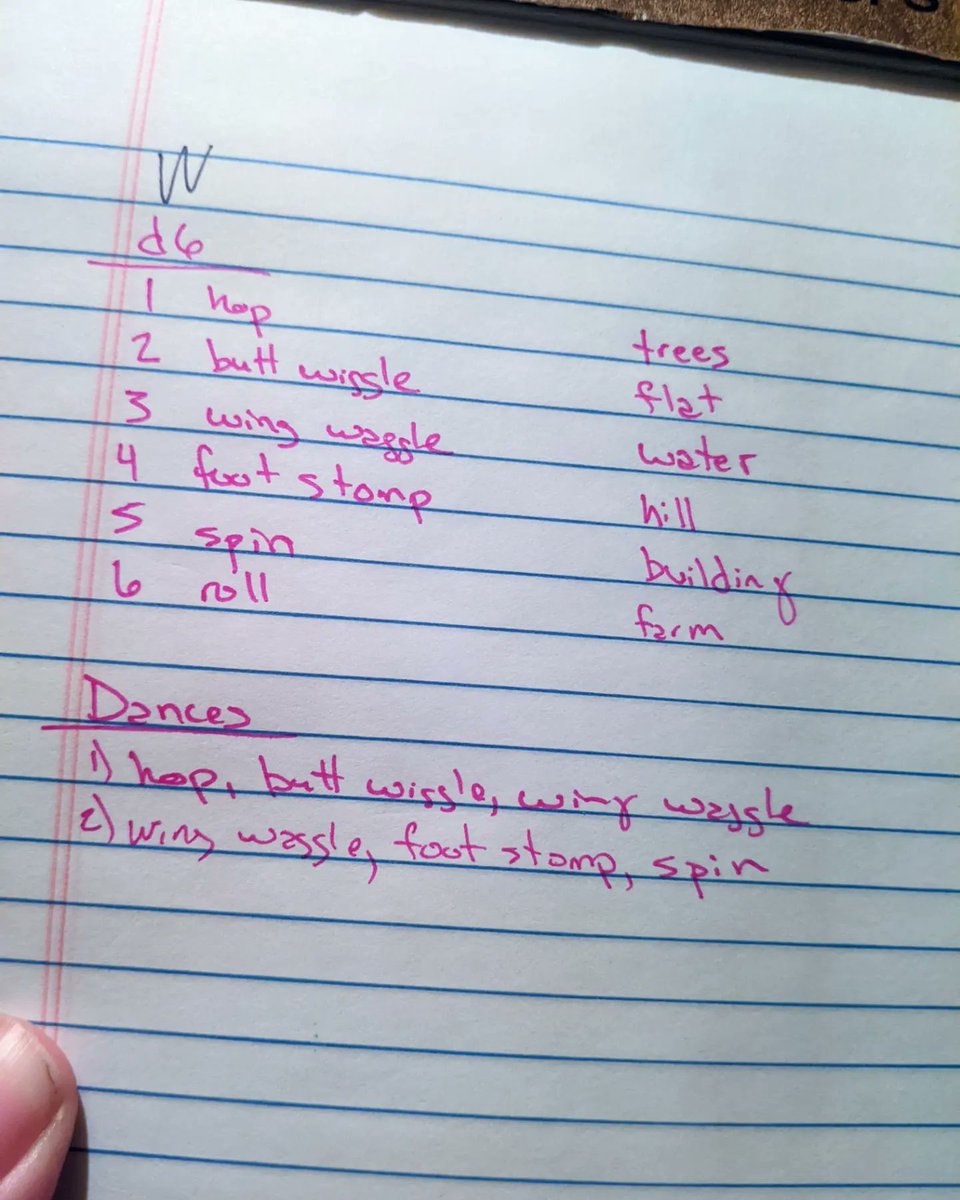 W
d6
1 hop
2 butt wiggle
3 wing waggle
4 foot stomp
5 spin
6 roll
trees
flat
water
hill
building
farm
Dances
1) hop, butt wiggle, wing waggle
2) wing waggle, foot stomp, spin